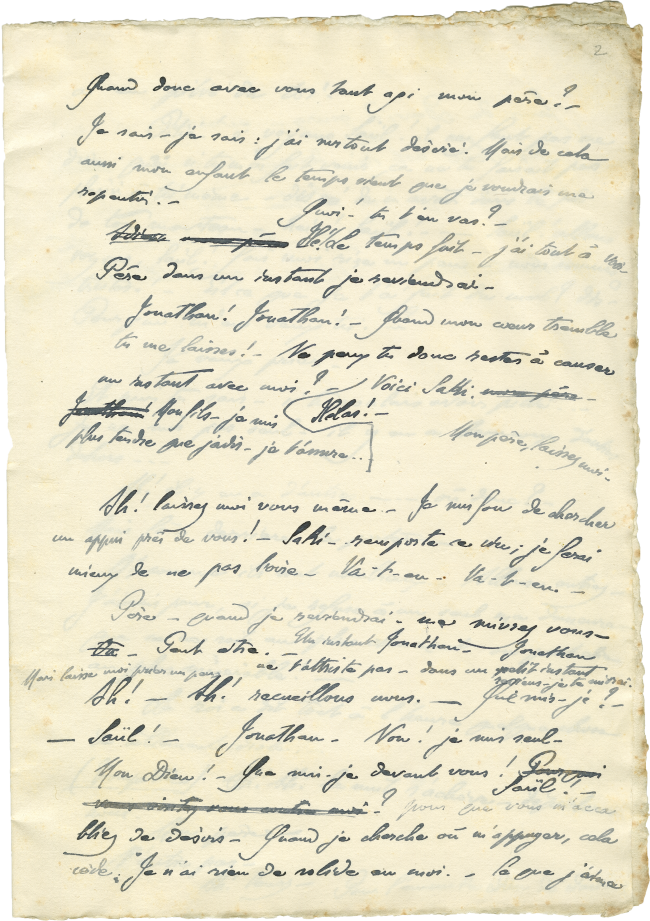 2
Quand donc avez vous tant agi mon père? –
Je sais – je sais : j'ai surtout désiré. Mais de cela
aussi mon enfant le temps vient que je voudrais me
repentir. –
Quoi! tu t'en vas? –
Adieu mon père Hé! Le temps fuit – j'ai tout à
Père dans un instant je reviendrai –
Jonathan! Jonathan! – Quand mon cœur tremble
tu me laisses! – Ne peux tu donc rester à causer
un instant avec moi? – Voici Saki. mon père –
Jonathan! Mon fils – je suis Hélas! –
plus tendre que jadis – je t'assure...
Mon père, laissez moi –
Ah! laissez moi vous même – Je suis fou de chercher
un appui près de vous! – Saki – remporte ce vin; je ferai
mieux de ne pas boire – Va-t-en – Va-t-en –
Père – quand je reviendrai – me suivrez vous –
Va – Peut être. – Un instant Jonathan – Jonathan
ne t'attriste pas – dans un petit instant
Mais laisse moi prier un peu reviens – je te suivrai –
Ah! – Ah! recueillons nous. — Qui suis-je? –
— Saül! – Jonathan – Non! je suis seul –
Mon Dieu! – Que suis-je devant vous! Pourquoi
Saül! –
vous contre moi? pour que vous m'acca
bliez de désirs – Quand je cherche où m'appuyer, cela
cède; Je n'ai rien de solide en moi. – Ce que j'aime